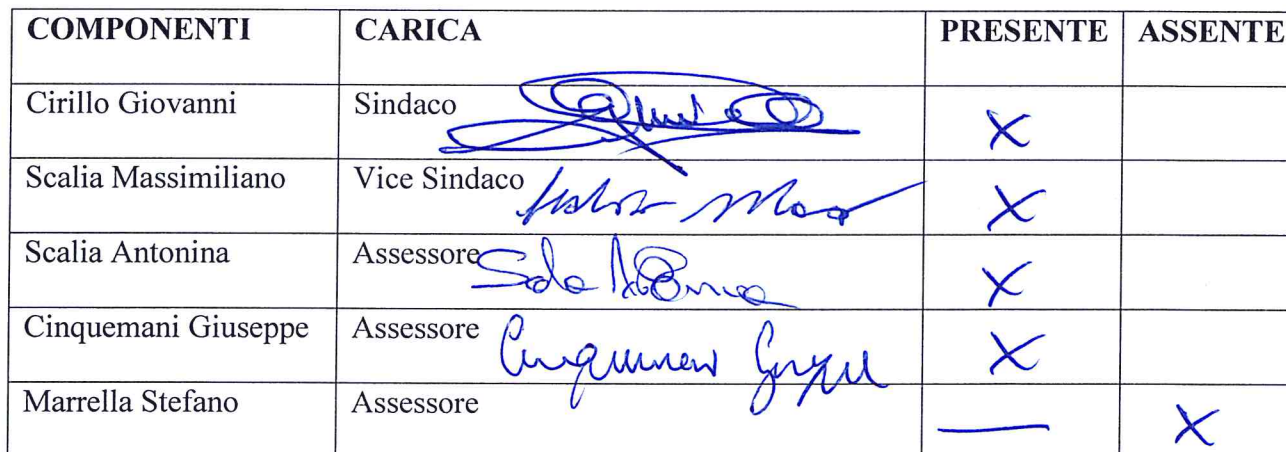 COMPONENTI CARICA PRESENTE ASSENTE
Cirillo Giovanni Sindaco X
Scalia Massimiliano Vice Sindaco X
Scalia Antonina Assessore X
Cinquemani Giuseppe Assessore X
Marrella Stefano Assessore — X